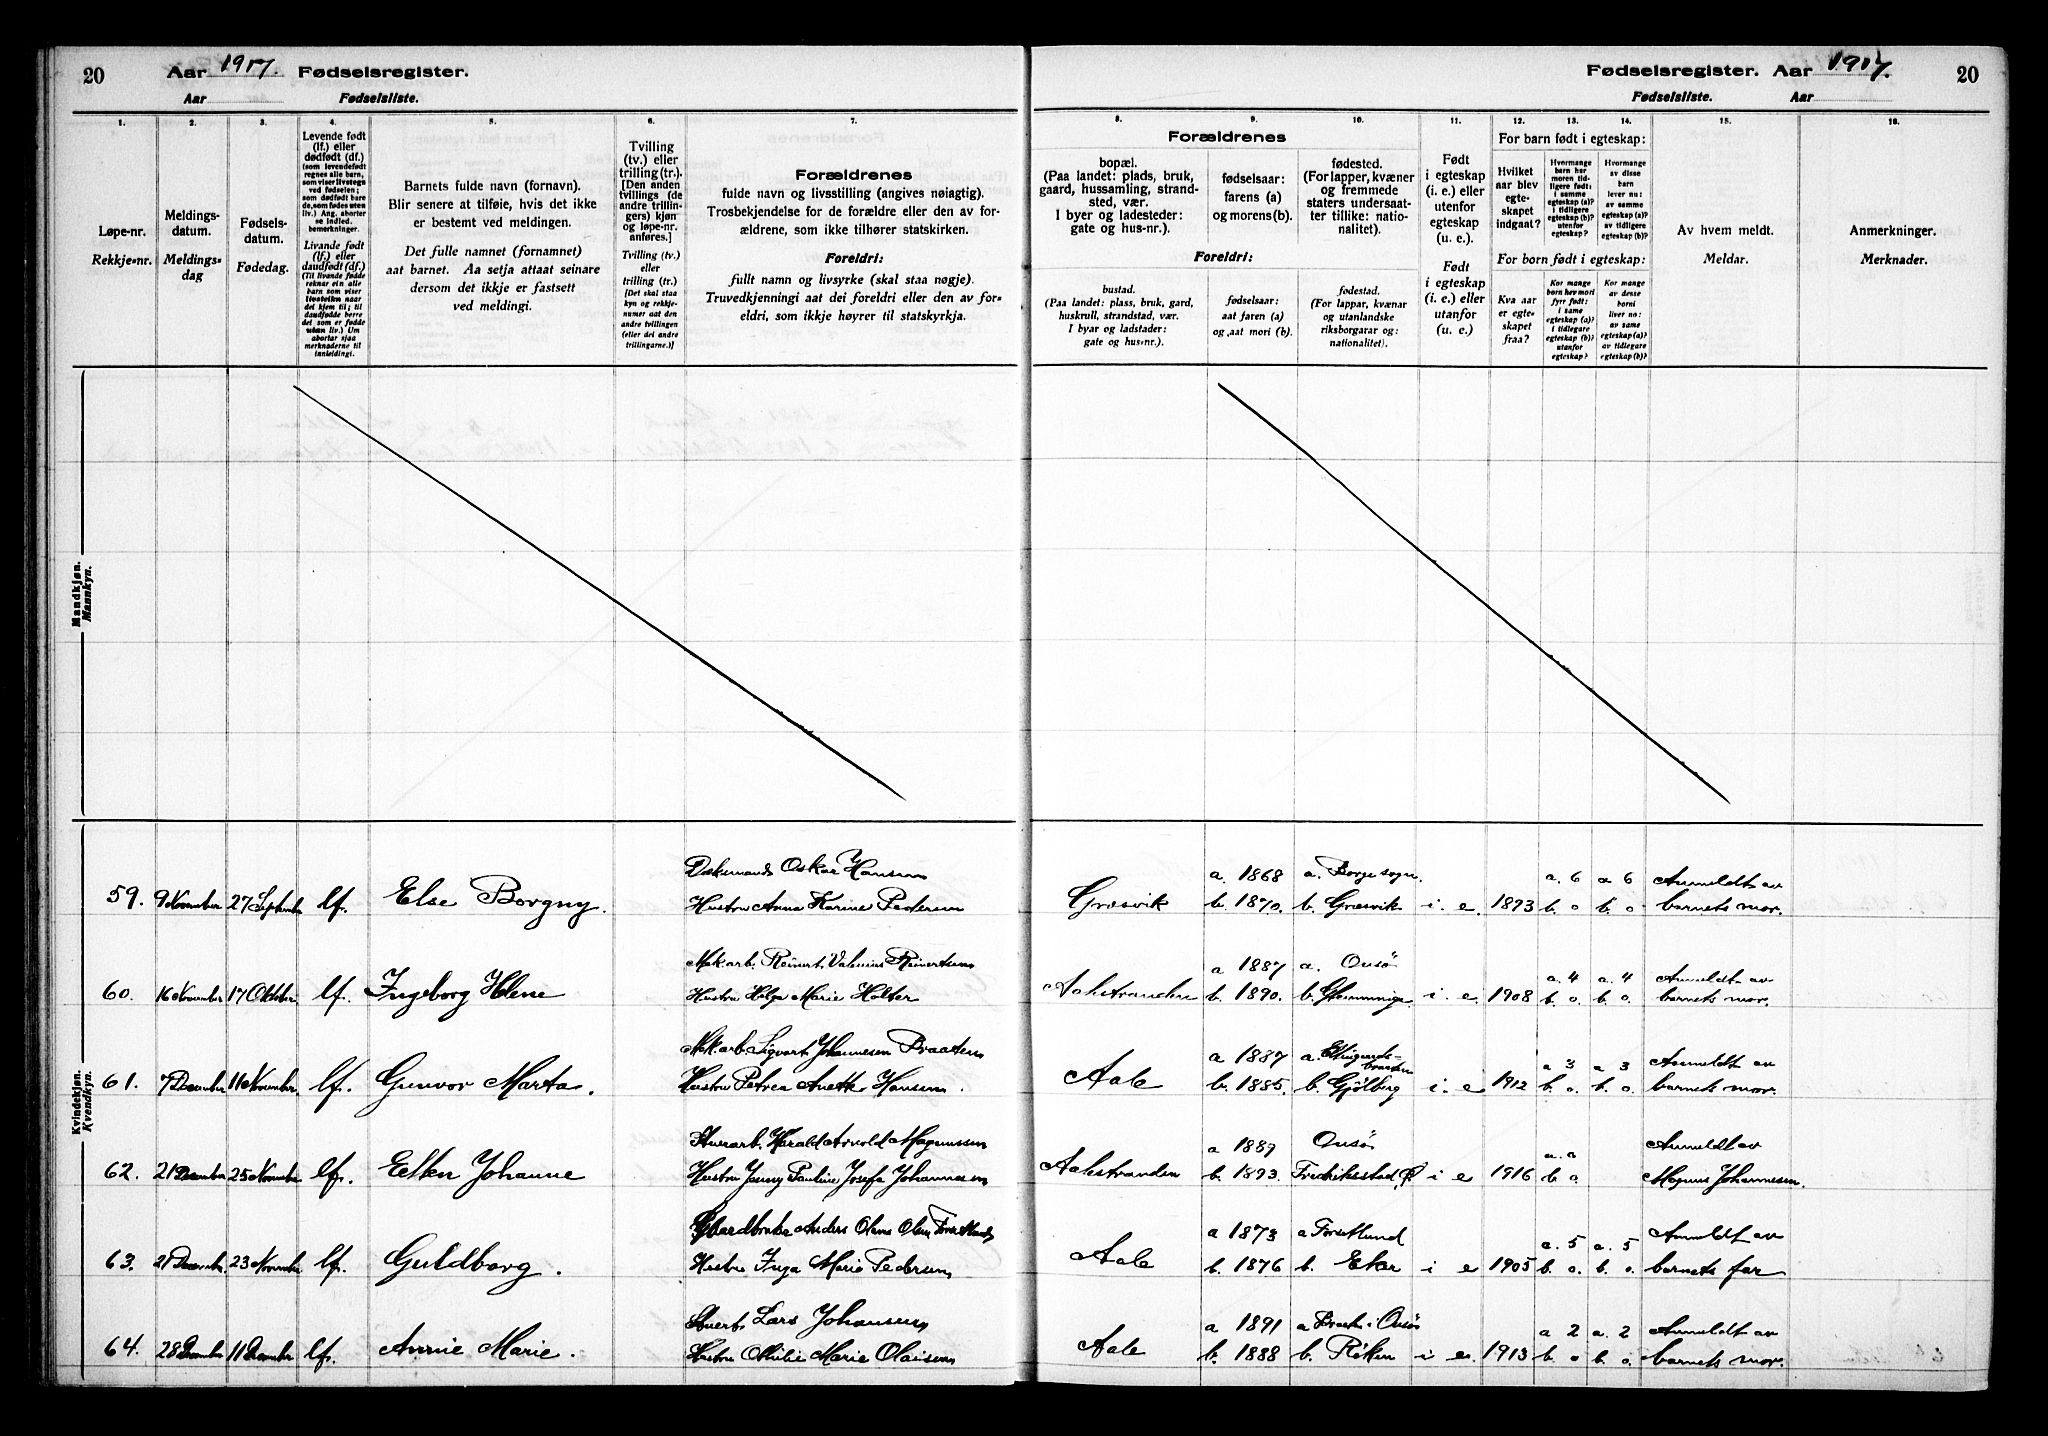 20 Aar 1917. Fødselsregister.
Aar Fødselsliste.
Fødselsregister. Aar 1917. 20
Fødselsliste. Aar
1. 2. 3. 4. 5. 6. 7.
Løpe-nr.
Rekkje-nr.
Meldings-
datum.
Meldings-
dag
Fødsels-
datum.
Fødedag.
Levende født
(lf.) eller
dødfødt (df.)
(som levendefødt
regnes alle barn,
som viser livstegn
ved fødselen;
som dødfødt bare
de, som fødes uten
liv.) Ang. aborter
se indled.
bemerkninger.
Livande født
(lf.) eller
daudfødt (df.)
(Til livande fødde
reknar ein alle
barn som viser
livsteikn naar
det kjem til; til
daudfødde berre
dei som er fødde
utan liv.) Um
abortar sjaa
merknaderne til
innleidingi.
Barnets fulde navn (fornavn).
Blir senere at tilføie, hvis det ikke
er bestemt ved meldingen.
Det fulle namnet (fornamnet)
aat barnet. Aa setja attaat seinare
dersom det ikkje er fastsett
ved meldingi.
Tvilling
(tv.) eller
trilling (tr.).
[Den anden
tvillings (de
andre trillin-
gers) kjøn
og løpe-nr.
anføres.]
Tvilling (tv.)
eller
trilling (tr.)
[Det skal staa
kyn og rekkje-
numer aat den
andre tvillingen
(eller dei andre
trillingarne.)]
Forældrenes
fulde navn og livsstilling (angives nøiagtig).
Trosbekjendelse for de forældre eller den av for-
ældrene, som ikke tilhører statskirken.
Foreldri:
fullt namn og livsyrke (skal staa nøgje).
Truvedkjenningi aat dei foreldri eller den av for-
eldri, som ikkje høyrer til statskyrkja.
8. 9. 10. 11. 12. 13. 14. 15. 16.
Forældrenes
bopæl.
(Paa landet: plads, bruk,
gaard, hussamling, strand-
sted, vær.
I byer og ladesteder:
gate og hus-nr.).
fødselsaar:
farens (a)
og morens (b).
fødested.
(For lapper, kvæner
og fremmede
staters undersaat-
ter tillike: natio-
nalitet).
Foreldri:
bustad.
(Paa landet: plass, bruk, gard,
huskrull, strandstad, vær.
I byar og ladstader:
gate og hus-nr.).
fødselsaar:
aat faren (a)
og aat mori (b).
fødestad.
(For lappar, kvænar
og utanlandske
riksborgarar og:
nationalitet).
Født
i egteskap
(i. e.) eller
utenfor
egteskap
(u. e.).
Født
i egteskap
(i. e.) eller
utanfor
(u. e.)
For barn født i egteskap:
Hvilket
aar blev
egte-
skapet
indgaat?
Hvormange
barn har
moren tid-
ligere født:
i samme
egteskap (a)?
i tidligere
egteskap (b)?
utenfor
egteskap?
Hvormange
av disse
barn
lever nu:
av samme
egteskap (a)?
av tidligere
egteskap (b)?
For born født i egteskap:
Kva aar
er egte-
skapet
fraa?
Kor mange
born hev mori
fyrr født:
i same
egteskap (a)?
i tidlegare
egteskap (b)?
utanfor
egteskap?
Kor mange
av desse
borni
liver no:
av same
egteskap (a)?
av tidlegare
egteskap (b)?
Av hvem meldt.
Meldar.
Anmerkninger.
Merknader.
Mandkjøn.
Mannkyn.
Kvindekjøn.
Kvendkyn.
Oskar Hansen a. 1868 a. Borge sogn. a. 6 a 6 Anmeldt av
59. 9 November 27 September lf. Else Borgny. Hustru Anna Karine Pedersen Græsvik b. 1870. b. Græsvik i. e. 1893 b. o b. o barnets mor.
Mek. arb. Reinert Valenius Reinertsen a 1887 a. Onsø a. 4 a. 4 Anmeldt av
60. 16 November 17 Oktober lf. Ingeborg Helene Hustru Helga Marie Holter Aalestranden b. 1890. b. Glemminge i. e. 1908 b. o. b. o. barnets mor.
Mek. arb. Sigvart Johannesen Braaten a 1887 a. a 3 a 3 Anmeldt av
61. 7 December 11 November. lf. Gunvor Marta. Hustru Petrea Anette Hansen. Aale b. 1885. b. Gjølberg i. e 1912 b. o. b. o. barnets mor.
Harald Arnold Magnussen a 1889 Onsø Anmeldt av
62. 21 December 25 November lf. Ellen Johanne Hustru Jenny Pauline Josefa Johannesen Aalestranden b. 1893. Fredriksstad i e 1916 b o Magnus Johannesen.
Gaardbruker Anders Olens Olsen Torsetlund a 1873 a Torsetlund a. 5 a. 5 Anmeldt av
63. 21 December 23 November lf. Guldborg. Hustru Inga Marie Pedersen Aale b. 1876 b. Eker i e 1905 b. o. b. o. barnets far
Lars Johansen a 1891 a Onsø a 2 a. 2 Anmeldt av
64. 28 December 11 December lf. Annie Marie. Hustru Othilie Marie Olaisen Aale b. 1888 b. Røken i e. 1913 b. o b. o. barnets mor.